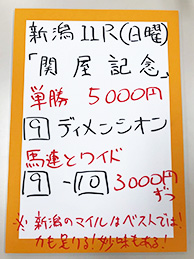 新潟11R(日曜)
「関屋記念」
単勝 5000円
9 ディメンシオン
馬連とワイド
9 - 10 3000円
ずつ
※新潟のマイルはベストでは!
力も足りる!妙味もある!